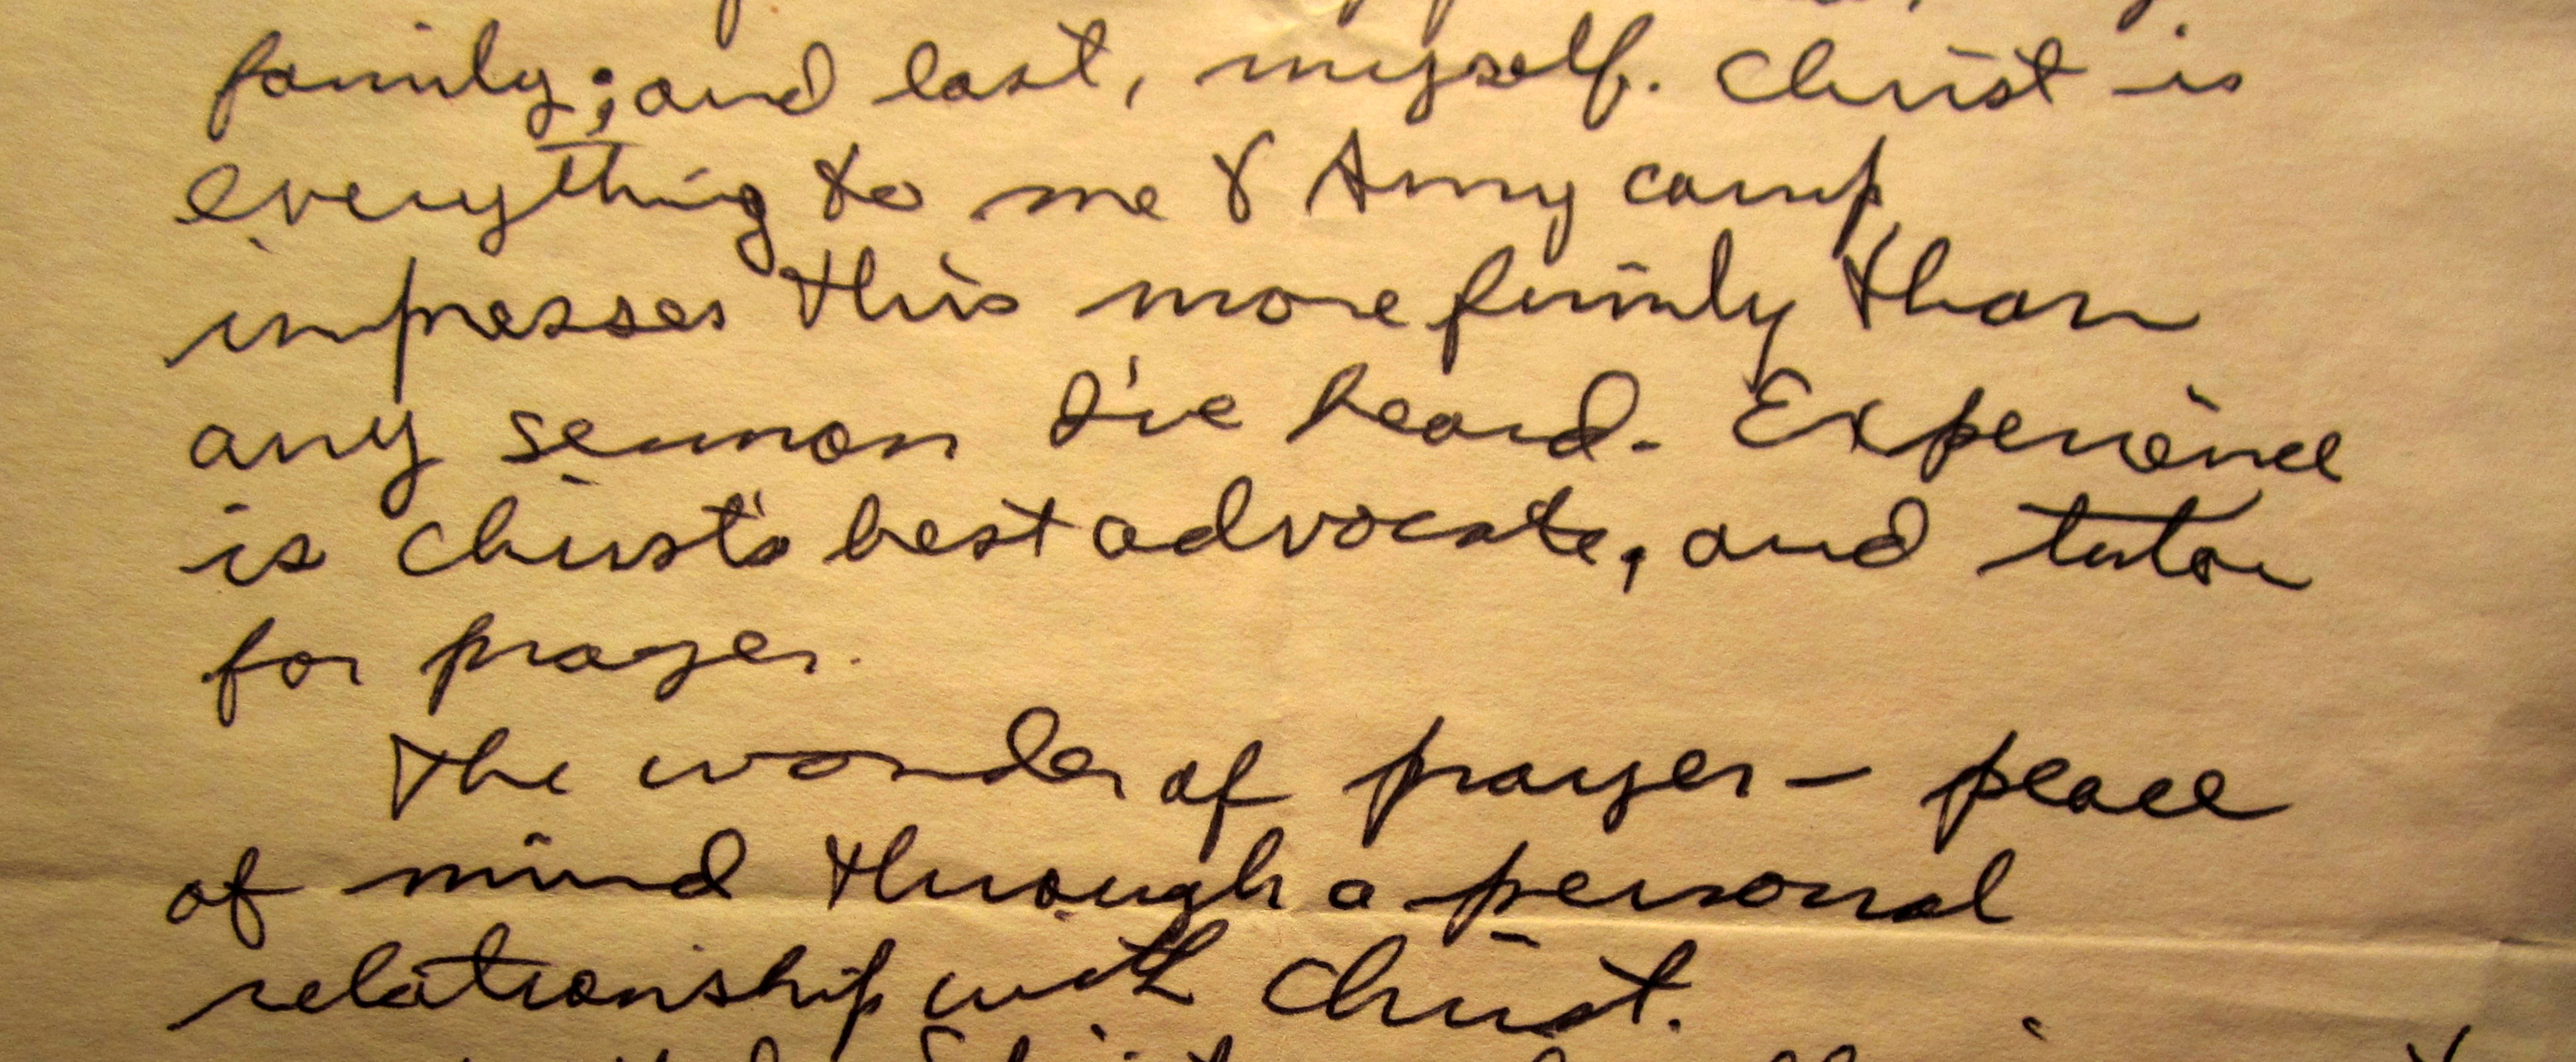 family; and last, myself. Christ is
everything to me & Army camp
impresses this more firmly than
any sermon I've heard. Experience
is Christ's best advocate, and tutor
for prayer.
The wonder of prayer — peace
of mind through a personal
relationship with Christ.